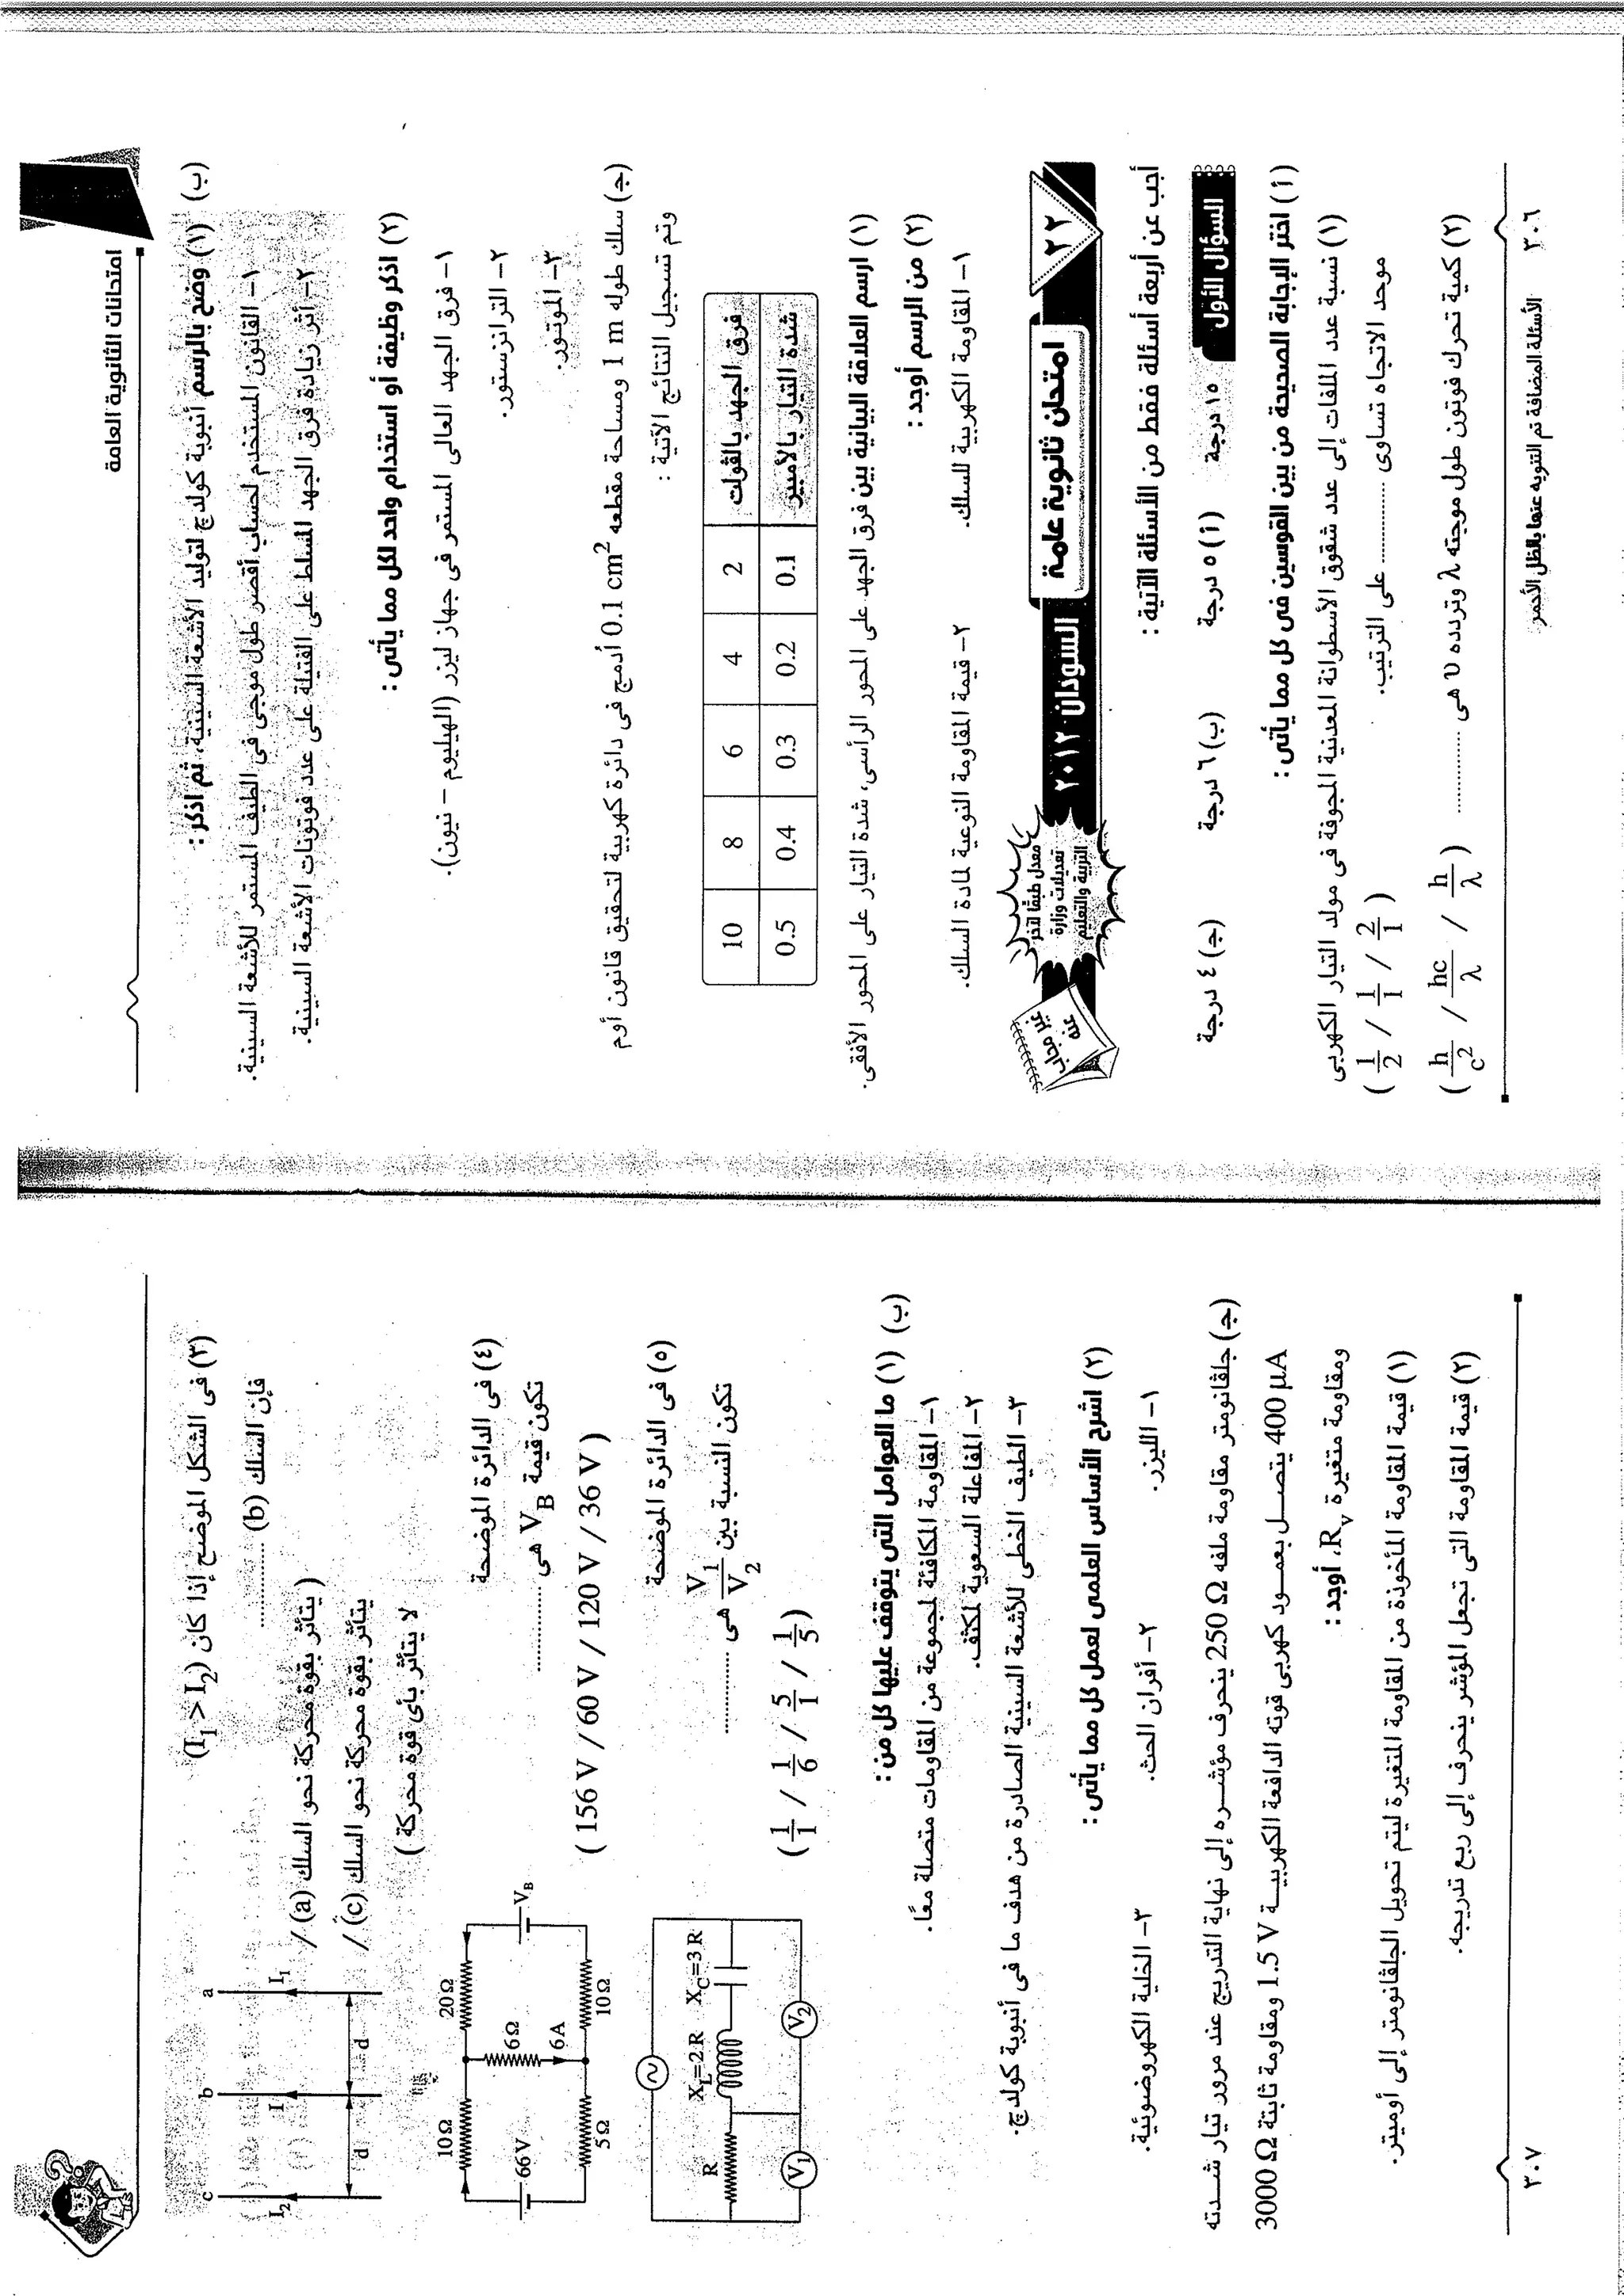 امتحانات الثانوية العامة
(ب) (١) وضح بالرسم أنبوبة كولدج لتوليد الأشعة السينية، ثم اذكر :
١- القانون المستخدم لحساب أقصر طول موجى فى الطيف المستمر للأشعة السينية.
٢- أثر زيادة فرق الجهد المسلط على الفتيلة على عدد فوتونات الأشعة السينية.
(٢) اذكر وظيفة أو استخدام واحد لكل مما يأتى :
١- فرق الجهد العالى المستمر فى جهاز ليزر (الهيليوم – نيون).
٢- الترانزستور.
٣- الموتور.
(جـ) سلك طوله 1 m ومساحة مقطعه 0.1 cm² أدمج فى دائرة كهربية لتحقيق قانون أوم
وتم تسجيل النتائج الآتية :
فرق الجهد بالڤولت 2 4 6 8 10
شدة التيار بالأمبير 0.1 0.2 0.3 0.4 0.5
(١) ارسم العلاقة البيانية بين فرق الجهد على المحور الرأسى، شدة التيار على المحور الأفقى.
(٢) من الرسم أوجد :
١- المقاومة الكهربية للسلك. ٢- قيمة المقاومة النوعية لمادة السلك.
٢٢ امتحان ثانوية عامة السودان ٢٠١٢
معدل طبقًا لآخر
تعديلات وزارة
التربية والتعليم
مجاب
عنه
أجب عن أربعة أسئلة فقط من الأسئلة الآتية :
السؤال الأول ١٥ درجة (أ) ٥ درجة (ب) ٦ درجة (جـ) ٤ درجة
(أ) اختر الإجابة الصحيحة من بين القوسين فى كل مما يأتى :
(١) نسبة عدد الملفات إلى عدد شقوق الأسطوانة المعدنية المجوفة فى مولد التيار الكهربى
موحد الاتجاه تساوى ............ على الترتيب. (1/2 / 1/1 / 2/1)
(٢) كمية تحرك فوتون طول موجته λ وتردده υ هى ............ (h/c² / hc/λ / h/λ)
٣٠٦ الأسئلة المضافة تم التنويه عنها بالظل الأحمر
(٣) فى الشكل الموضح إذا كان (I₁ > I₂)
فإن السلك (b) ............
( يتأثر بقوة محركة نحو السلك (a) /
يتأثر بقوة محركة نحو السلك (c) /
لا يتأثر بأى قوة محركة )
c b a
I₂ I I₁
d d
(٤) فى الدائرة الموضحة
تكون قيمة V_B هى ............
( 156 V / 60 V / 120 V / 36 V )
10 Ω 20 Ω
66 V 6 Ω 6 A V_B
5 Ω 10 Ω
(٥) فى الدائرة الموضحة
تكون النسبة بين V₁/V₂ هى ............
(1/1 / 1/6 / 5/1 / 1/5)
R X_L=2R X_C=3R
V₁ V₂
(ب) (١) ما العوامل التى يتوقف عليها كل من :
١- المقاومة المكافئة لمجموعة من المقاومات متصلة معًا.
٢- المفاعلة السعوية لمكثف.
٣- الطيف الخطى للأشعة السينية الصادرة من هدف ما فى أنبوبة كولدج.
(٢) اشرح الأساس العلمى لعمل كل مما يأتى :
١- الليزر. ٢- أفران الحث. ٣- الخلية الكهروضوئية.
(جـ) جلڤانومتر مقاومة ملفه 250 Ω ينحرف مؤشره إلى نهاية التدريج عند مرور تيار شدته
400 μA يتصل بعمود كهربى قوته الدافعة الكهربية 1.5 V ومقاومة ثابتة 3000 Ω
ومقاومة متغيرة R_v، أوجد :
(١) قيمة المقاومة المأخوذة من المقاومة المتغيرة ليتم تحويل الجلڤانومتر إلى أوميتر.
(٢) قيمة المقاومة التى تجعل المؤشر ينحرف إلى ربع تدريجه.
٣٠٧